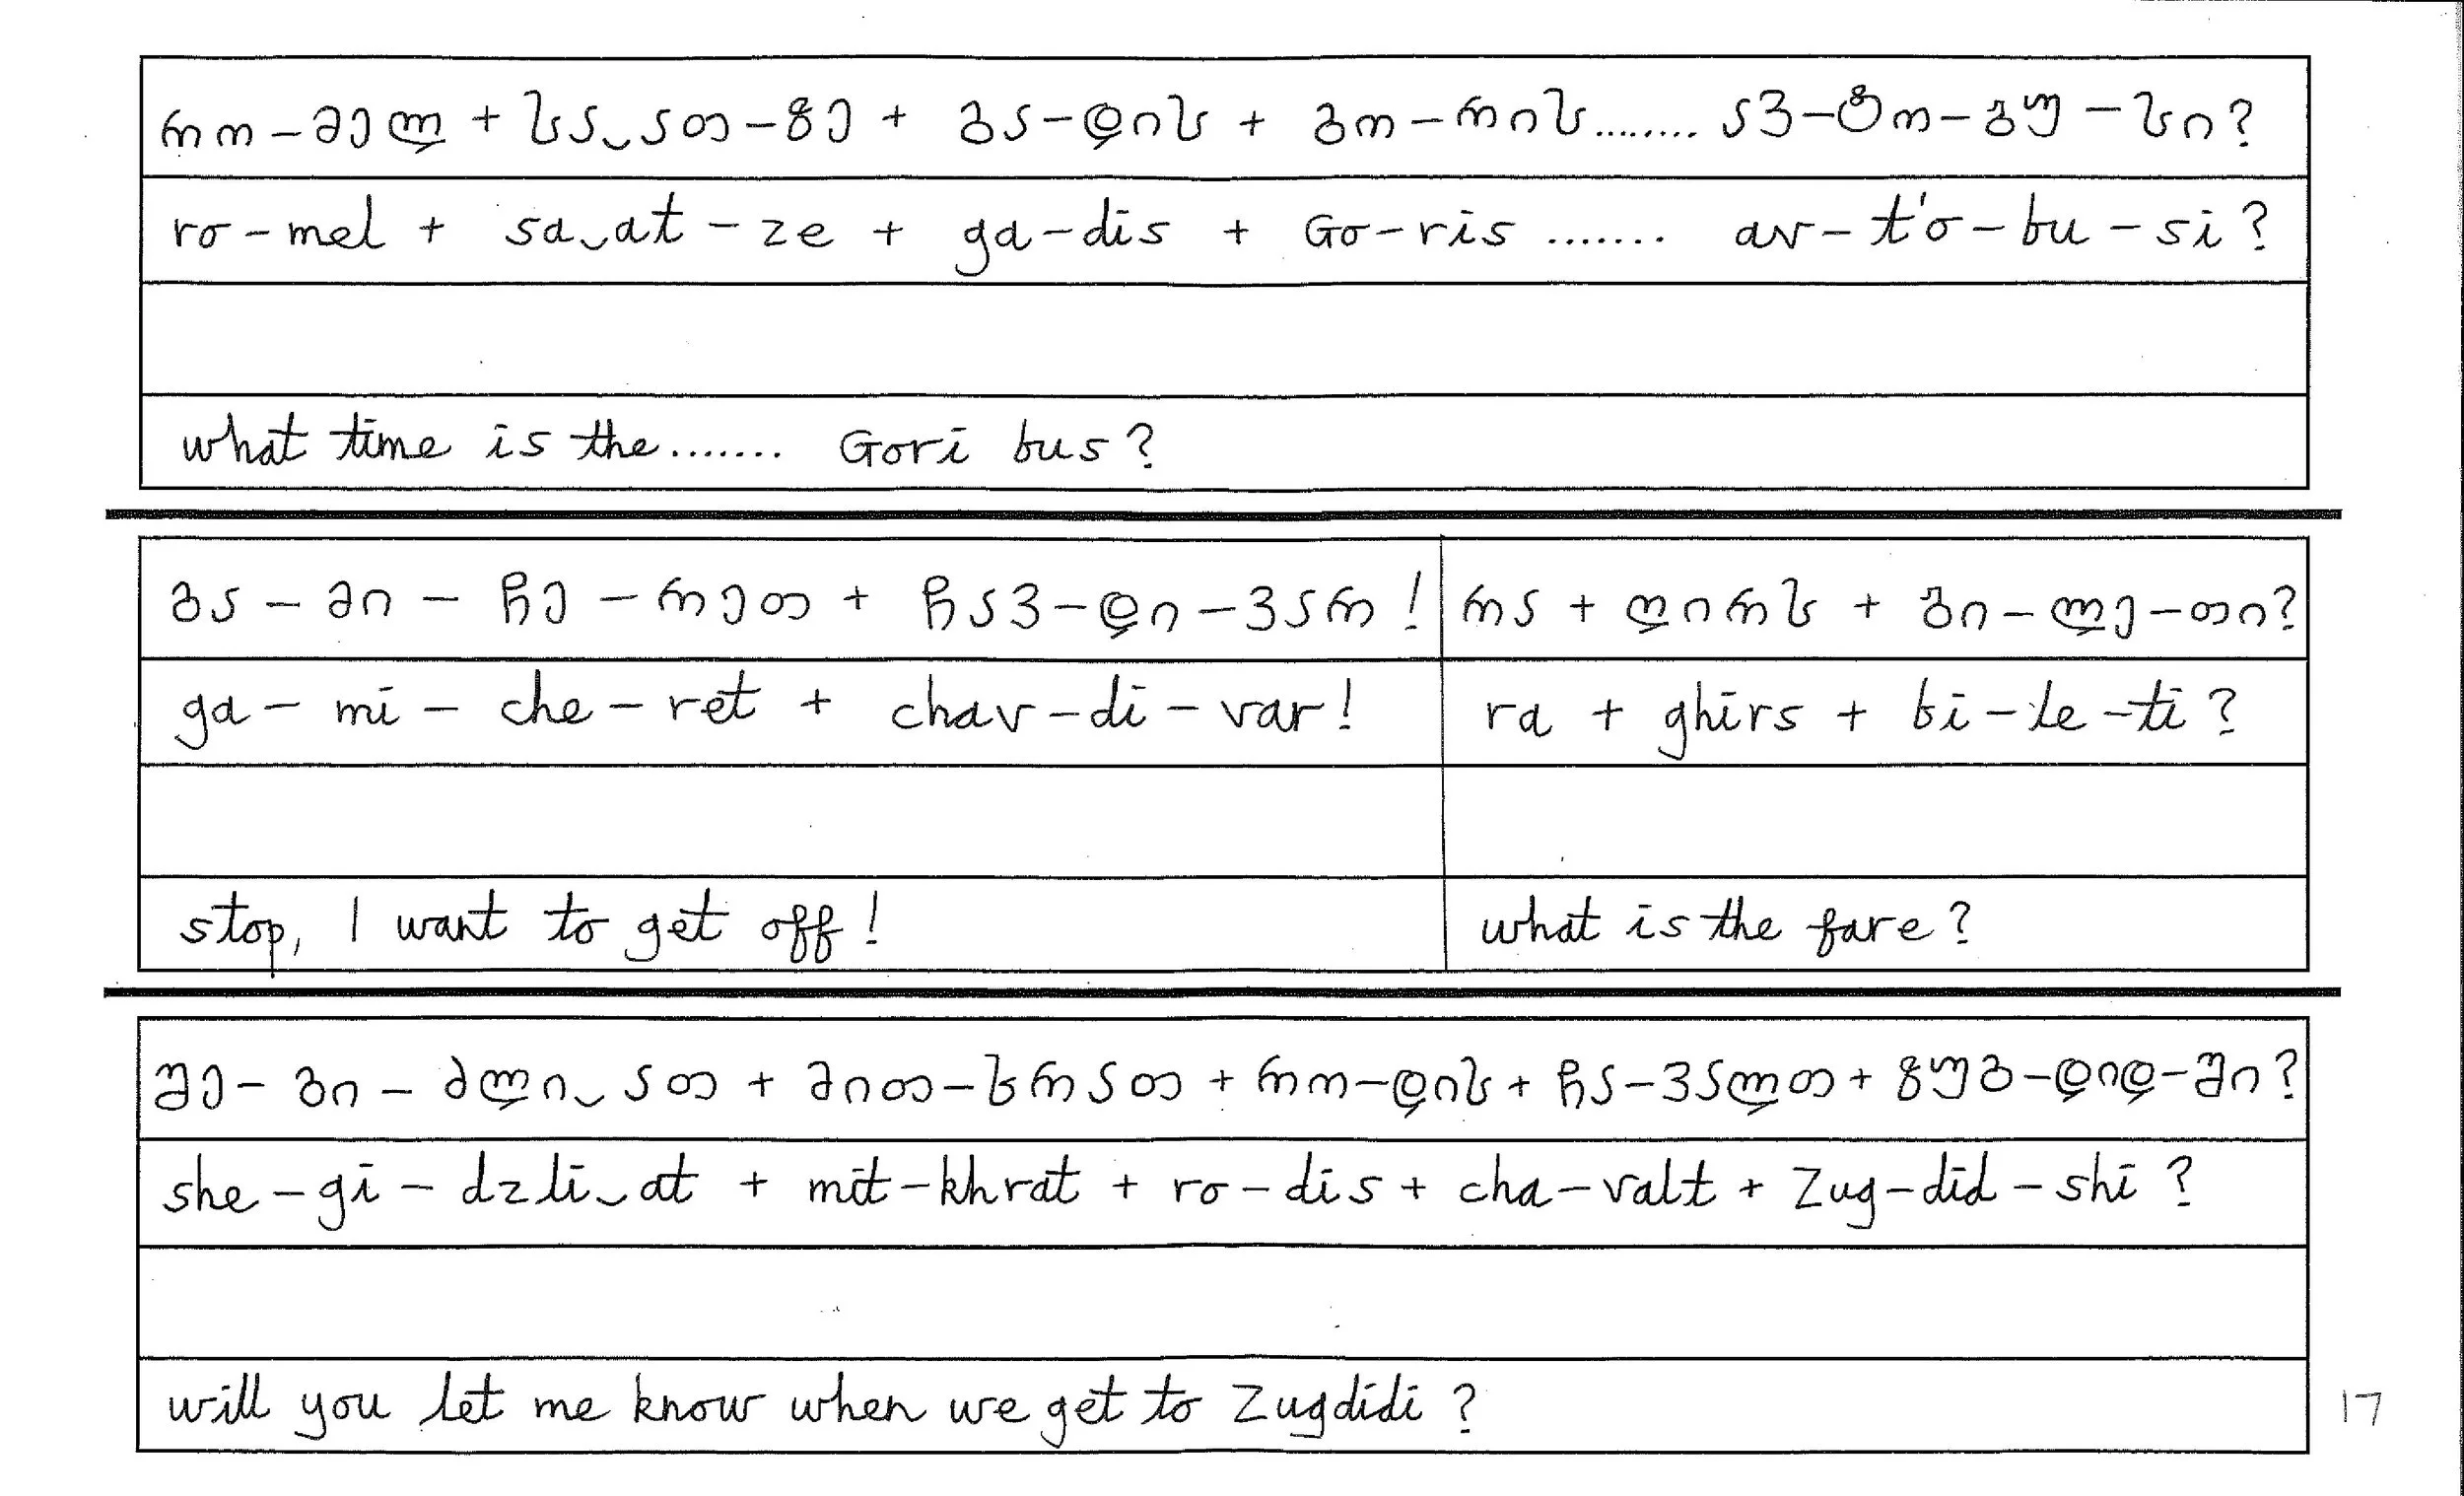 რო-მელ + სა‿ათ-ზე + გა-დის + გო-რის........ ავ-ტო-ბუ-სი?
ro-mel + sa‿at-ze + ga-dis + Go-ris ....... av-t'o-bu-si?
what time is the....... Gori bus?
გა-მი-ჩე-რეთ + ჩავ-დი-ვარ!
ga-mi-che-ret + chav-di-var!
stop, I want to get off!
რა + ღირს + ბი-ლე-თი?
ra + ghirs + bi-le-ti?
what is the fare?
შე-გი-ძლი‿ათ + მით-ხრათ + რო-დის + ჩა-ვალთ + ზუგ-დიდ-ში?
she-gi-dzli‿at + mit-khrat + ro-dis + cha-valt + Zug-did-shi?
will you let me know when we get to Zugdidi?
17